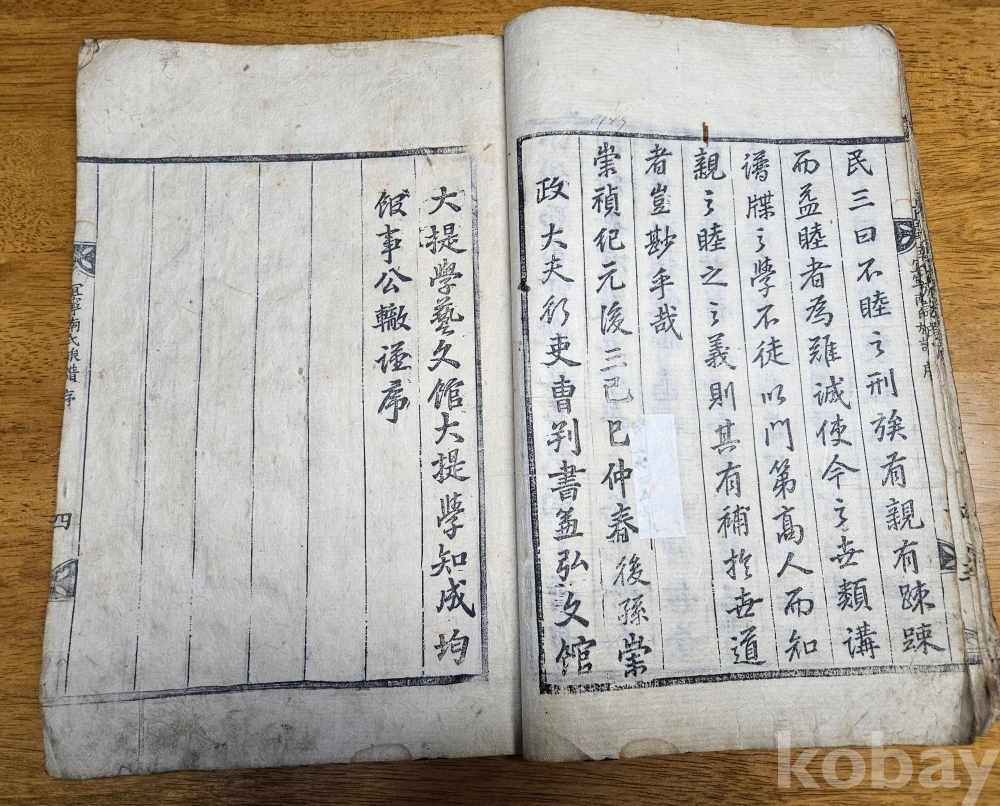 民三曰不睦之刑族有親有踈踈
而益睦者為難誠使今之世類講
譜牒之學不徒以門第高人而知
親之睦之之義則其有補於世道
者豈尠乎哉
崇禎紀元後三己巳仲春後孫崇
政大夫行吏曹判書兼弘文館
大提學藝文館大提學知成均
館事公轍謹序
宜寧南氏族譜 序
四
kobay